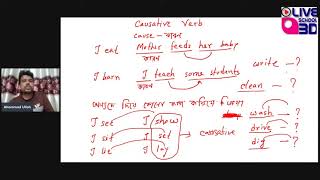 LIVE SCHOOL 3D
Causative Verb
cause - কারণ
I eat Mother feeds her baby
কারণ
I learn I teach some students write - ?
কারণ clean - ?
দিয়ে কোনো কাজ করিয়ে
I see I show wash - ?
I sit I set causative drive - ?
I lie I lay dig - ?
Ahammad Ullah